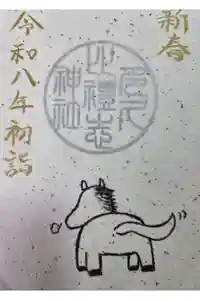 新春
令和八年初詣
神社